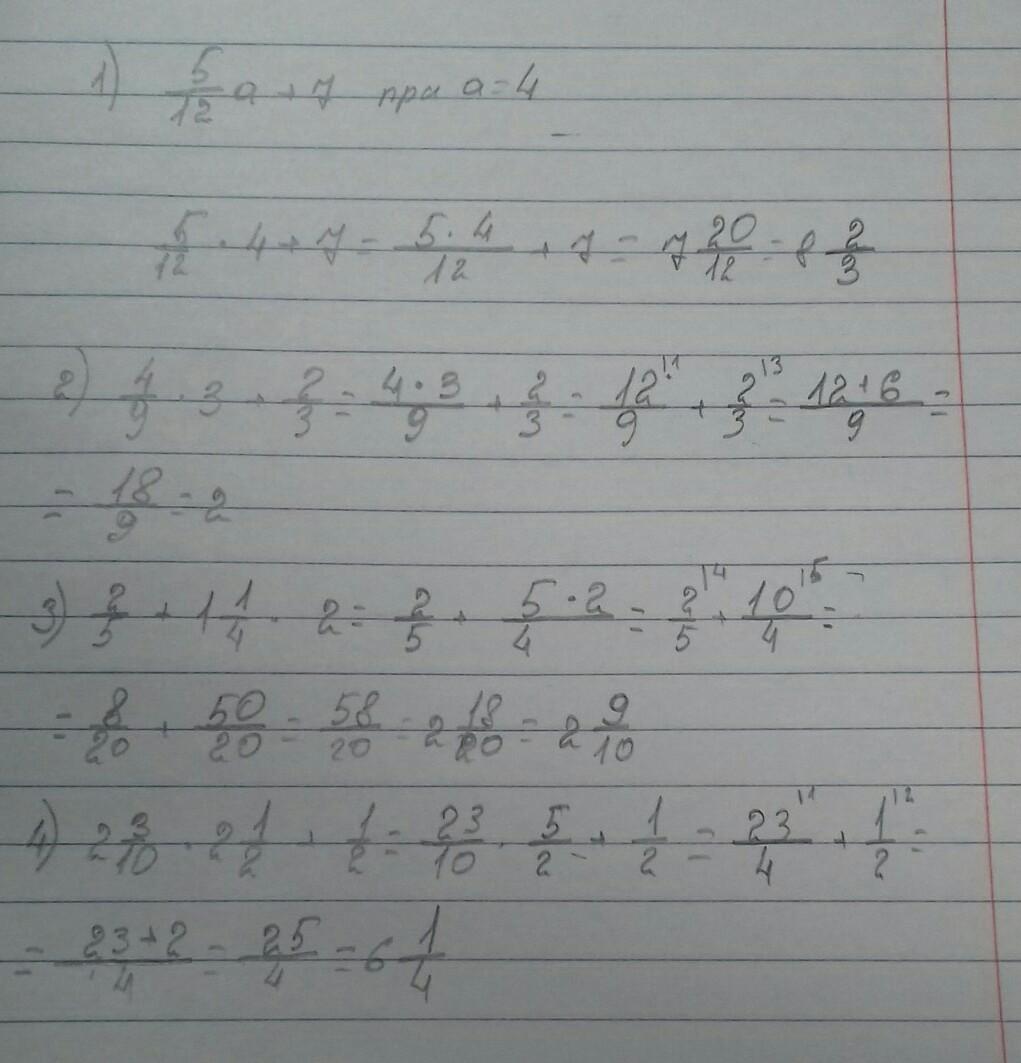 1) 5/12 a + 7 при a = 4
5/12 · 4 + 7 = 5·4/12 + 7 = 7 20/12 = 8 2/3
2) 4/9 · 3 + 2/3 = 4·3/9 + 2/3 = 12/9 |1 + 2/3 |3 = 12+6/9 =
= 18/9 = 2
3) 2/5 + 1 1/4 · 2 = 2/5 + 5·2/4 = 2/5 |4 + 10/4 |5 =
= 8/20 + 50/20 = 58/20 = 2 18/20 = 2 9/10
4) 2 3/10 · 2 1/2 + 1/2 = 23/10 · 5/2 + 1/2 = 23/4 |1 + 1/2 |2 =
= 23+2/4 = 25/4 = 6 1/4